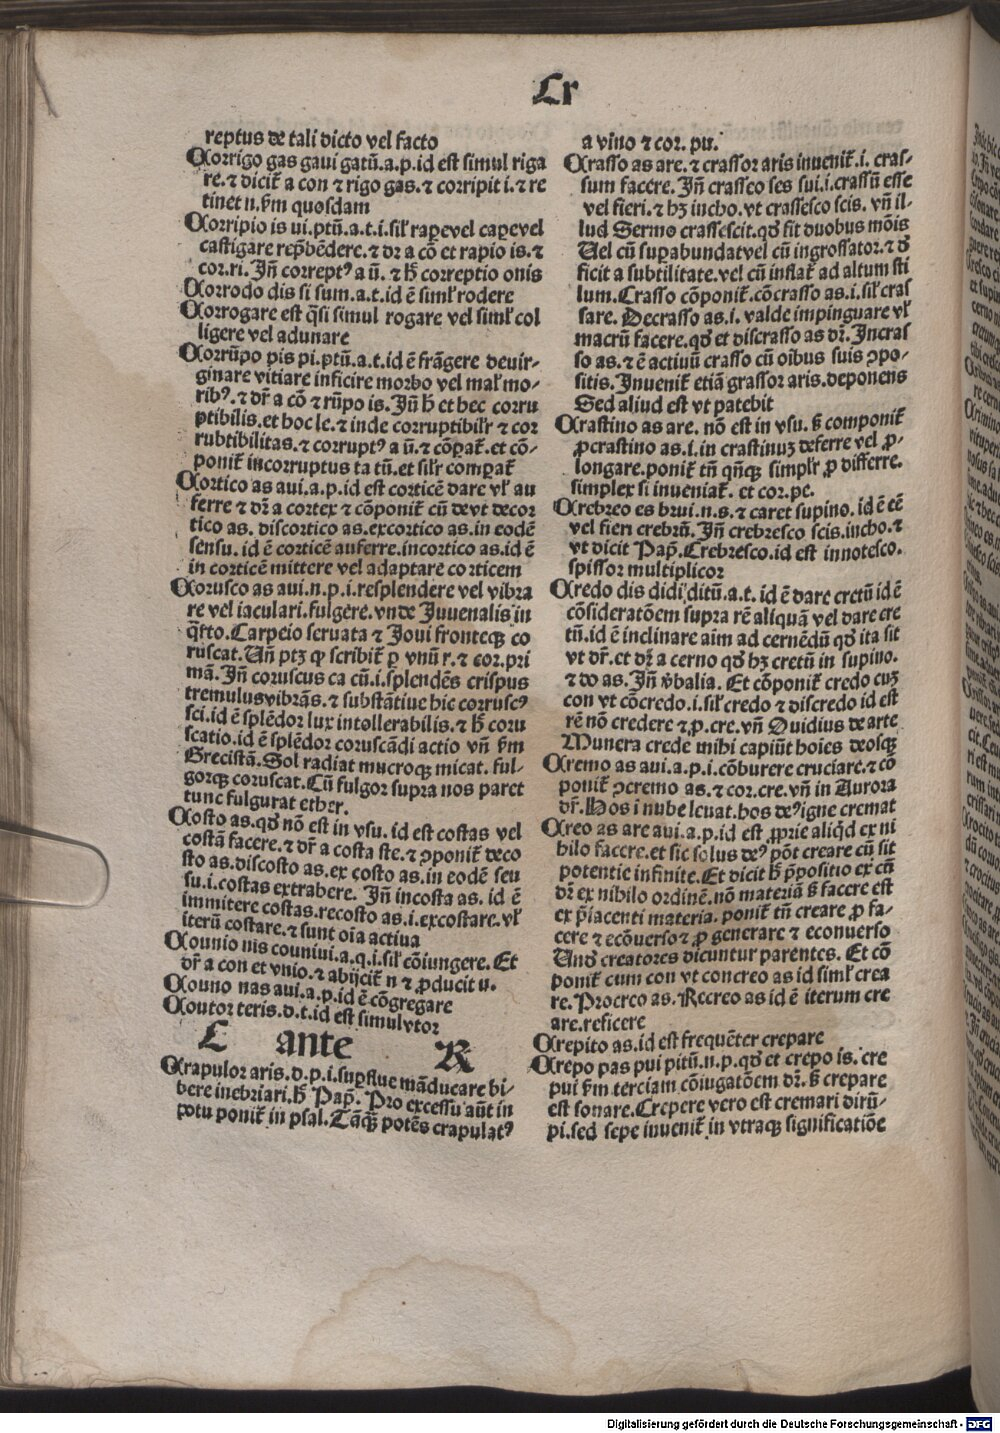 Cr
reptus de tali dicto vel facto
Corrigo gas gaui gatū.a.p.id est simul riga
re.⁊ dicit̄ a con ⁊ rigo gas.⁊ corripit i.⁊ re
tinet n.ẜm quosdam
Corripio is ui.ptū.a.t.i.sil̄r rapeuel capeuel
castigare rep̄hēdere.⁊ dr̄ a cō et rapio is.⁊
cor.ri. Jn̄ correptꝰ a ū. ⁊ h̄ correptio onis
Corrodo dis si sum.a.t.id ē siml̄r rodere
Corrogare est q̄si simul rogare vel siml̄r col
ligere vel adunare
Corrūpo pis pi.ptū.a.t.id ē frāgere deuir-
ginare vitiare inficire morbo vel mal̄ mo-
ribꝰ.⁊ dr̄ a cō ⁊ rūpo is. Jn̄ h̄ et hec corru
ptibilis.et hoc le.⁊ inde corruptibil̄r ⁊ cor
rubtibilitas.⁊ corruptꝰ a ū.⁊ cōꝑat̄.et cō-
ponit̄ incorruptus ta tū.et sil̄r comꝑat̄
Cortico as aui.a.p.id est corticē dare vl̄ au
ferre ⁊ dr̄ a cortex ⁊ cōponit̄ cū de vt decor
tico as. discortico as.excortico as.in eodē
sensu. id ē corticē auferre.incortico as.id ē
in corticē mittere vel adaptare corticem
Corusco as aui.n.p.i.resplendere vel vibra
re vel iaculari.fulgere.vnde Juuenalis in
q̄rto.Carpeio seruata ⁊ Joui fronteqꝫ co
ruscat.Un̄ ptꝫ ꝙ scribit̄ ꝑ vnū r.⁊ cor.pri
mā. Jn̄ coruscus ca cū.i.splendēs crispus
tremulusvibrās.⁊ substātiue hic corruscꝰ
sci.id ē splēdor lux intollerabilis.⁊ h̄ coru
scatio.id ē splēdor coruscādi actio vn̄ ẜm
Grecistā.Sol radiat mucroqꝫ micat. ful-
gorqꝫ coruscat.Cū fulgor supra nos paret
tunc fulgurat ether.
Costo as.qđ nō est in vsu. id est costas vel
costā facere.⁊ dr̄ a costa ste.⁊ ꝯponit̄ deco
sto as.discosto as.ex costo as.in eodē seu
su.i.costas extrahere. Jn̄ incosta as. id ē
immitere costas.recosto as.i.excostare.vl̄
iterū costare.⁊ sunt oīa actiua
Counio nis couniui.a.q.i.sil̄r cōiungere. Et
dr̄ a con et vnio.⁊ abijcit̄ n ⁊ ꝓducit u.
Couno nas aui.a.p.id ē cōgregare
Coutor teris.d.t.id est simulvtor
C ante R
Crapulor aris.d.p.i.suꝑflue māducare bi-
bere inebriari.h̄ Pap̄. Pro excessu aūt in
potu ponit̄ in psal.Tāqꝫ potēs crapulatꝰ
a vino ⁊ cor. pu.
Crasso as are.⁊ crassor aris inuenit̄.i. cras-
sum facere. Jn̄ crasseo ses sui.i.crassū esse
vel fieri.⁊ hꝫ incho.vt crassesco scis. vn̄ il-
lud Sermo crassescit.qđ fit duobus mōis
Uel cū suꝑabundatvel cū ingrossator.⁊ đ
ficit a subtilitate.vel cū inflat̄ ad altum sti
lum.Crasso cōponit̄.cōcrasso as.i.sil̄r cras
sare. Decrasso as.i. valde impinguare vl̄
macrū facere.qđ et discrasso as dr̄. Jncras
so as.⁊ ē actiuū crasso cū oībus suis ꝯpo-
sitis. Jnuenit̄ etiā grassor aris.deponens
Sed aliud est vt patebit
Crastino as are. nō est in vsu. ẜ componit̄
ꝓcrastino as.i.in crastinuꝫ deferre vel ꝓ-
longare.ponit̄ tn̄ qn̄qꝫ simpl̄r ꝓ differre.
simplex si inueniat̄. et cor.pe.
Crebreo es brui.n.s.⁊ caret supino. id ē eē
vel fieri crebrū. Jn̄ crebresco scis.incho.⁊
vt dicit Pap̄.Crebresco.id est innotesco.
spissor multiplicor
Credo dis didi ditū.a.t. id ē dare cretū id ē
cōsideratōem supra rē aliquā vel dare cre
tū.id ē inclinare aīm ad cernēdū qđ ita sit
vt dr̄.et dr̄ a cerno qđ hꝫ cretū in supino.
⁊ do as. Jn̄ v̄balia. Et cōponit̄ credo cuꝫ
con vt cōcredo.i.sil̄r credo ⁊ discredo id est
rē nō credere ⁊.p.cre.vn̄ Ouidius de arte
Munera crede mihi capiūt hoīes deosqꝫ
Cremo as aui.a.p.i.cōburere cruciare.⁊ cō
ponit̄ ꝯcremo as.⁊ cor.cre.vn̄ in Aurora
dr̄.Hos ī nube leuat.hos deꝰigne cremat
Creo as are aui.a.p.id est ꝓprie aliqđ ex ni
hilo facere.et sic solus deꝰ pōt creare cū sit
potentie infinite.Et dicit h̄ p̄positio ex cū
dr̄ ex nihilo ordinē.nō materiā ẜ facere est
ex p̄iacenti materia. ponit̄ tn̄ creare ꝓ fa-
cere ⁊ ecōuerso⁊ ꝓ generare ⁊ econuerso
Unđ creatores dicuntur parentes. Et cō
ponit̄ cum con vt concreo as id siml̄r crea
re. Procreo as. Recreo as id ē iterum cre
are.reficere
Crepito as.id est frequēter crepare
Crepo pas pui pitū.n.p.qđ et crepo is. cre
pui ẜm terciam cōiugatōem dr̄. ẜ crepare
est sonare.Crepere vero est cremari dirū-
pi.sed sepe inuenit̄ in vtraqꝫ significatiōe
Digitalisierung gefördert durch die Deutsche Forschungsgemeinschaft - DFG